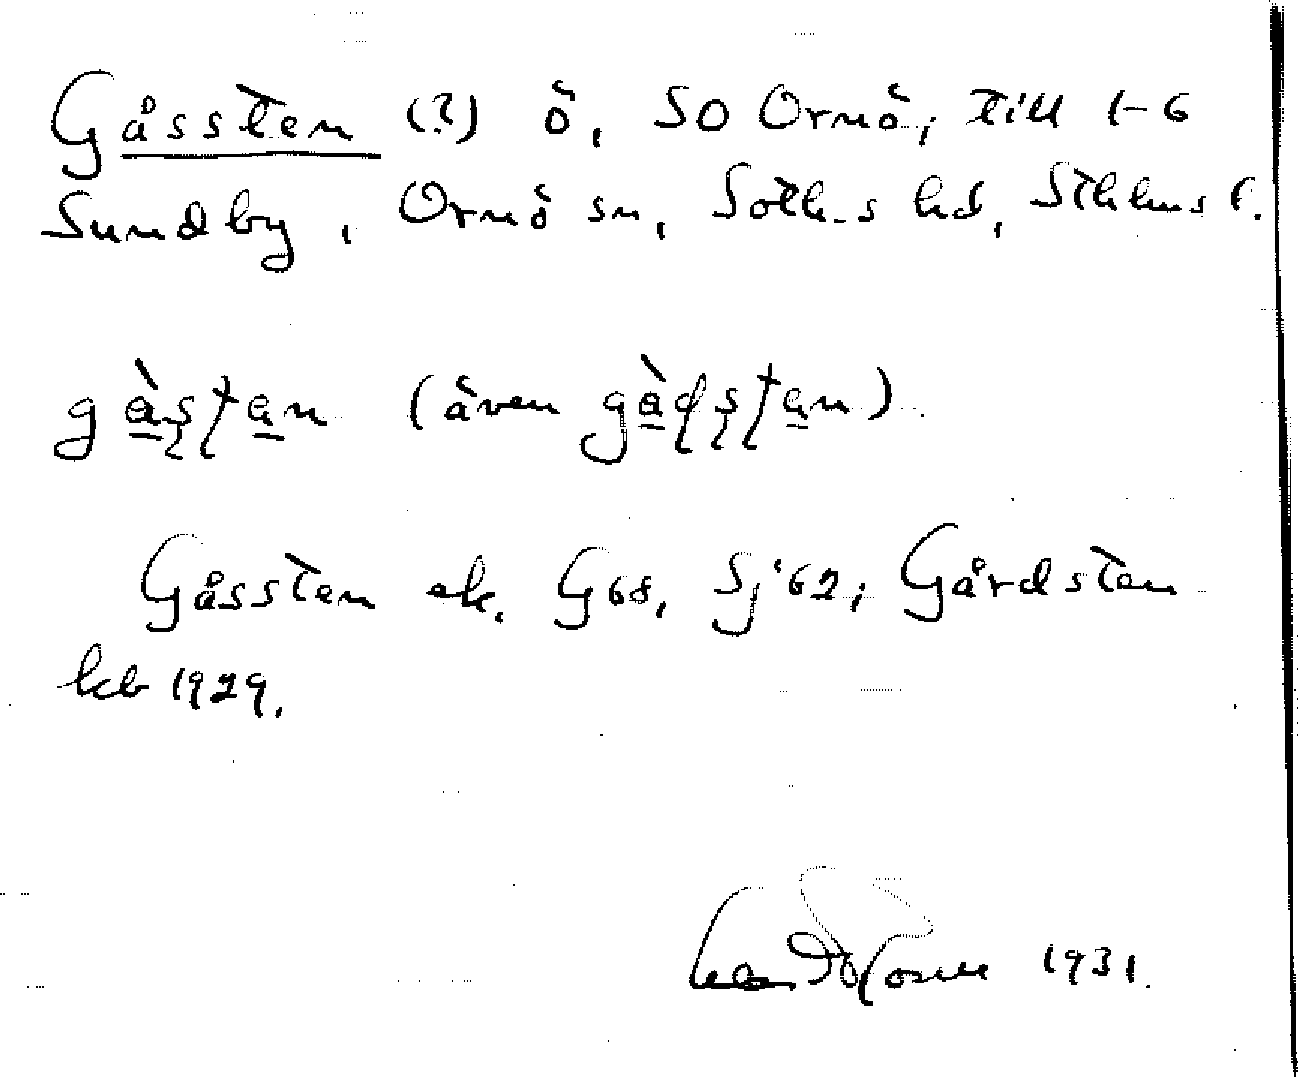 Gåssten (?) ö, SO Ornö, till 1-6
Sundby, Ornö sn, Soth-s hd, Sthlms l.
gàştan (även gàḍştan).
Gåssten ek. G68, Sj '62; Gårdsten
kb 1929.
1931.